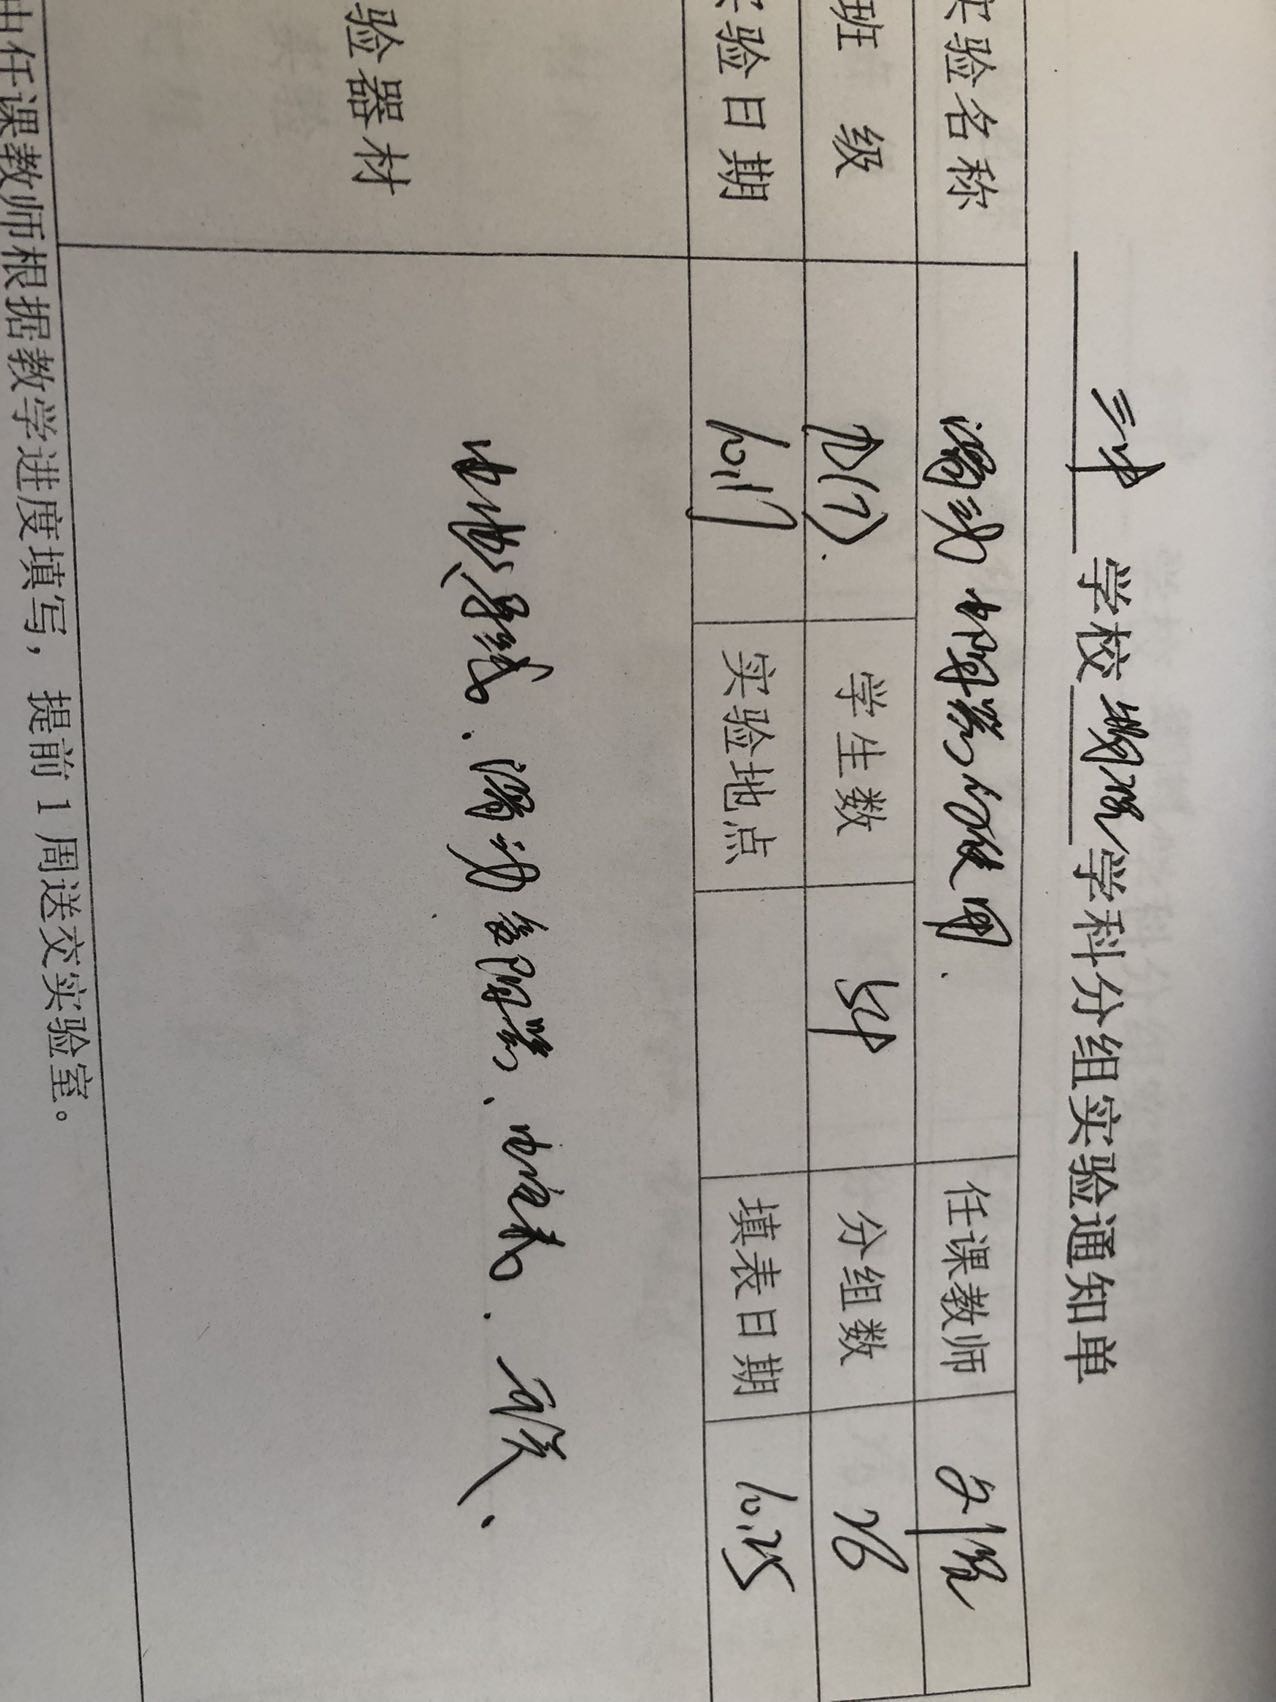 三中 学校 物理 学科分组实验通知单
实验名称 滑动变阻器的使用 任课教师
班 级 九(7) 学生数 54 分组数 26
实验日期 实验地点 填表日期 10.25
验器材 电池、导线、滑动变阻器、电流表、开关、
由任课教师根据教学进度填写，提前1周送交实验室。